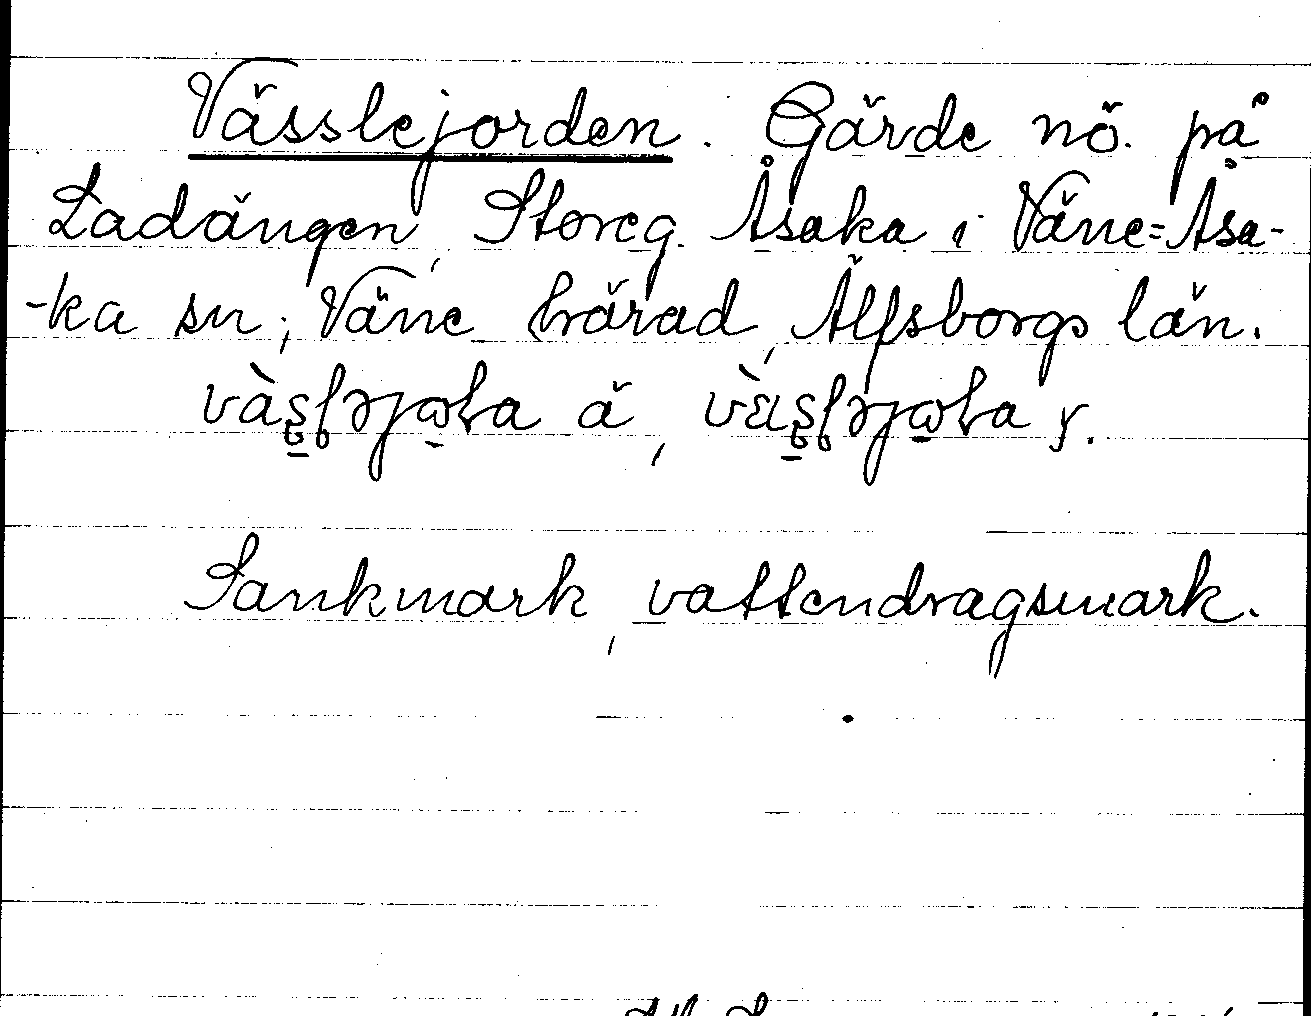 Vässlejorden. Gärde nö. på
Ladängen, Storeg. Åsaka i Väne=Åsa-
-ka sn, Väne härad, Älfsborgs län.
ä, y.
Sankmark, vattendragsmark.